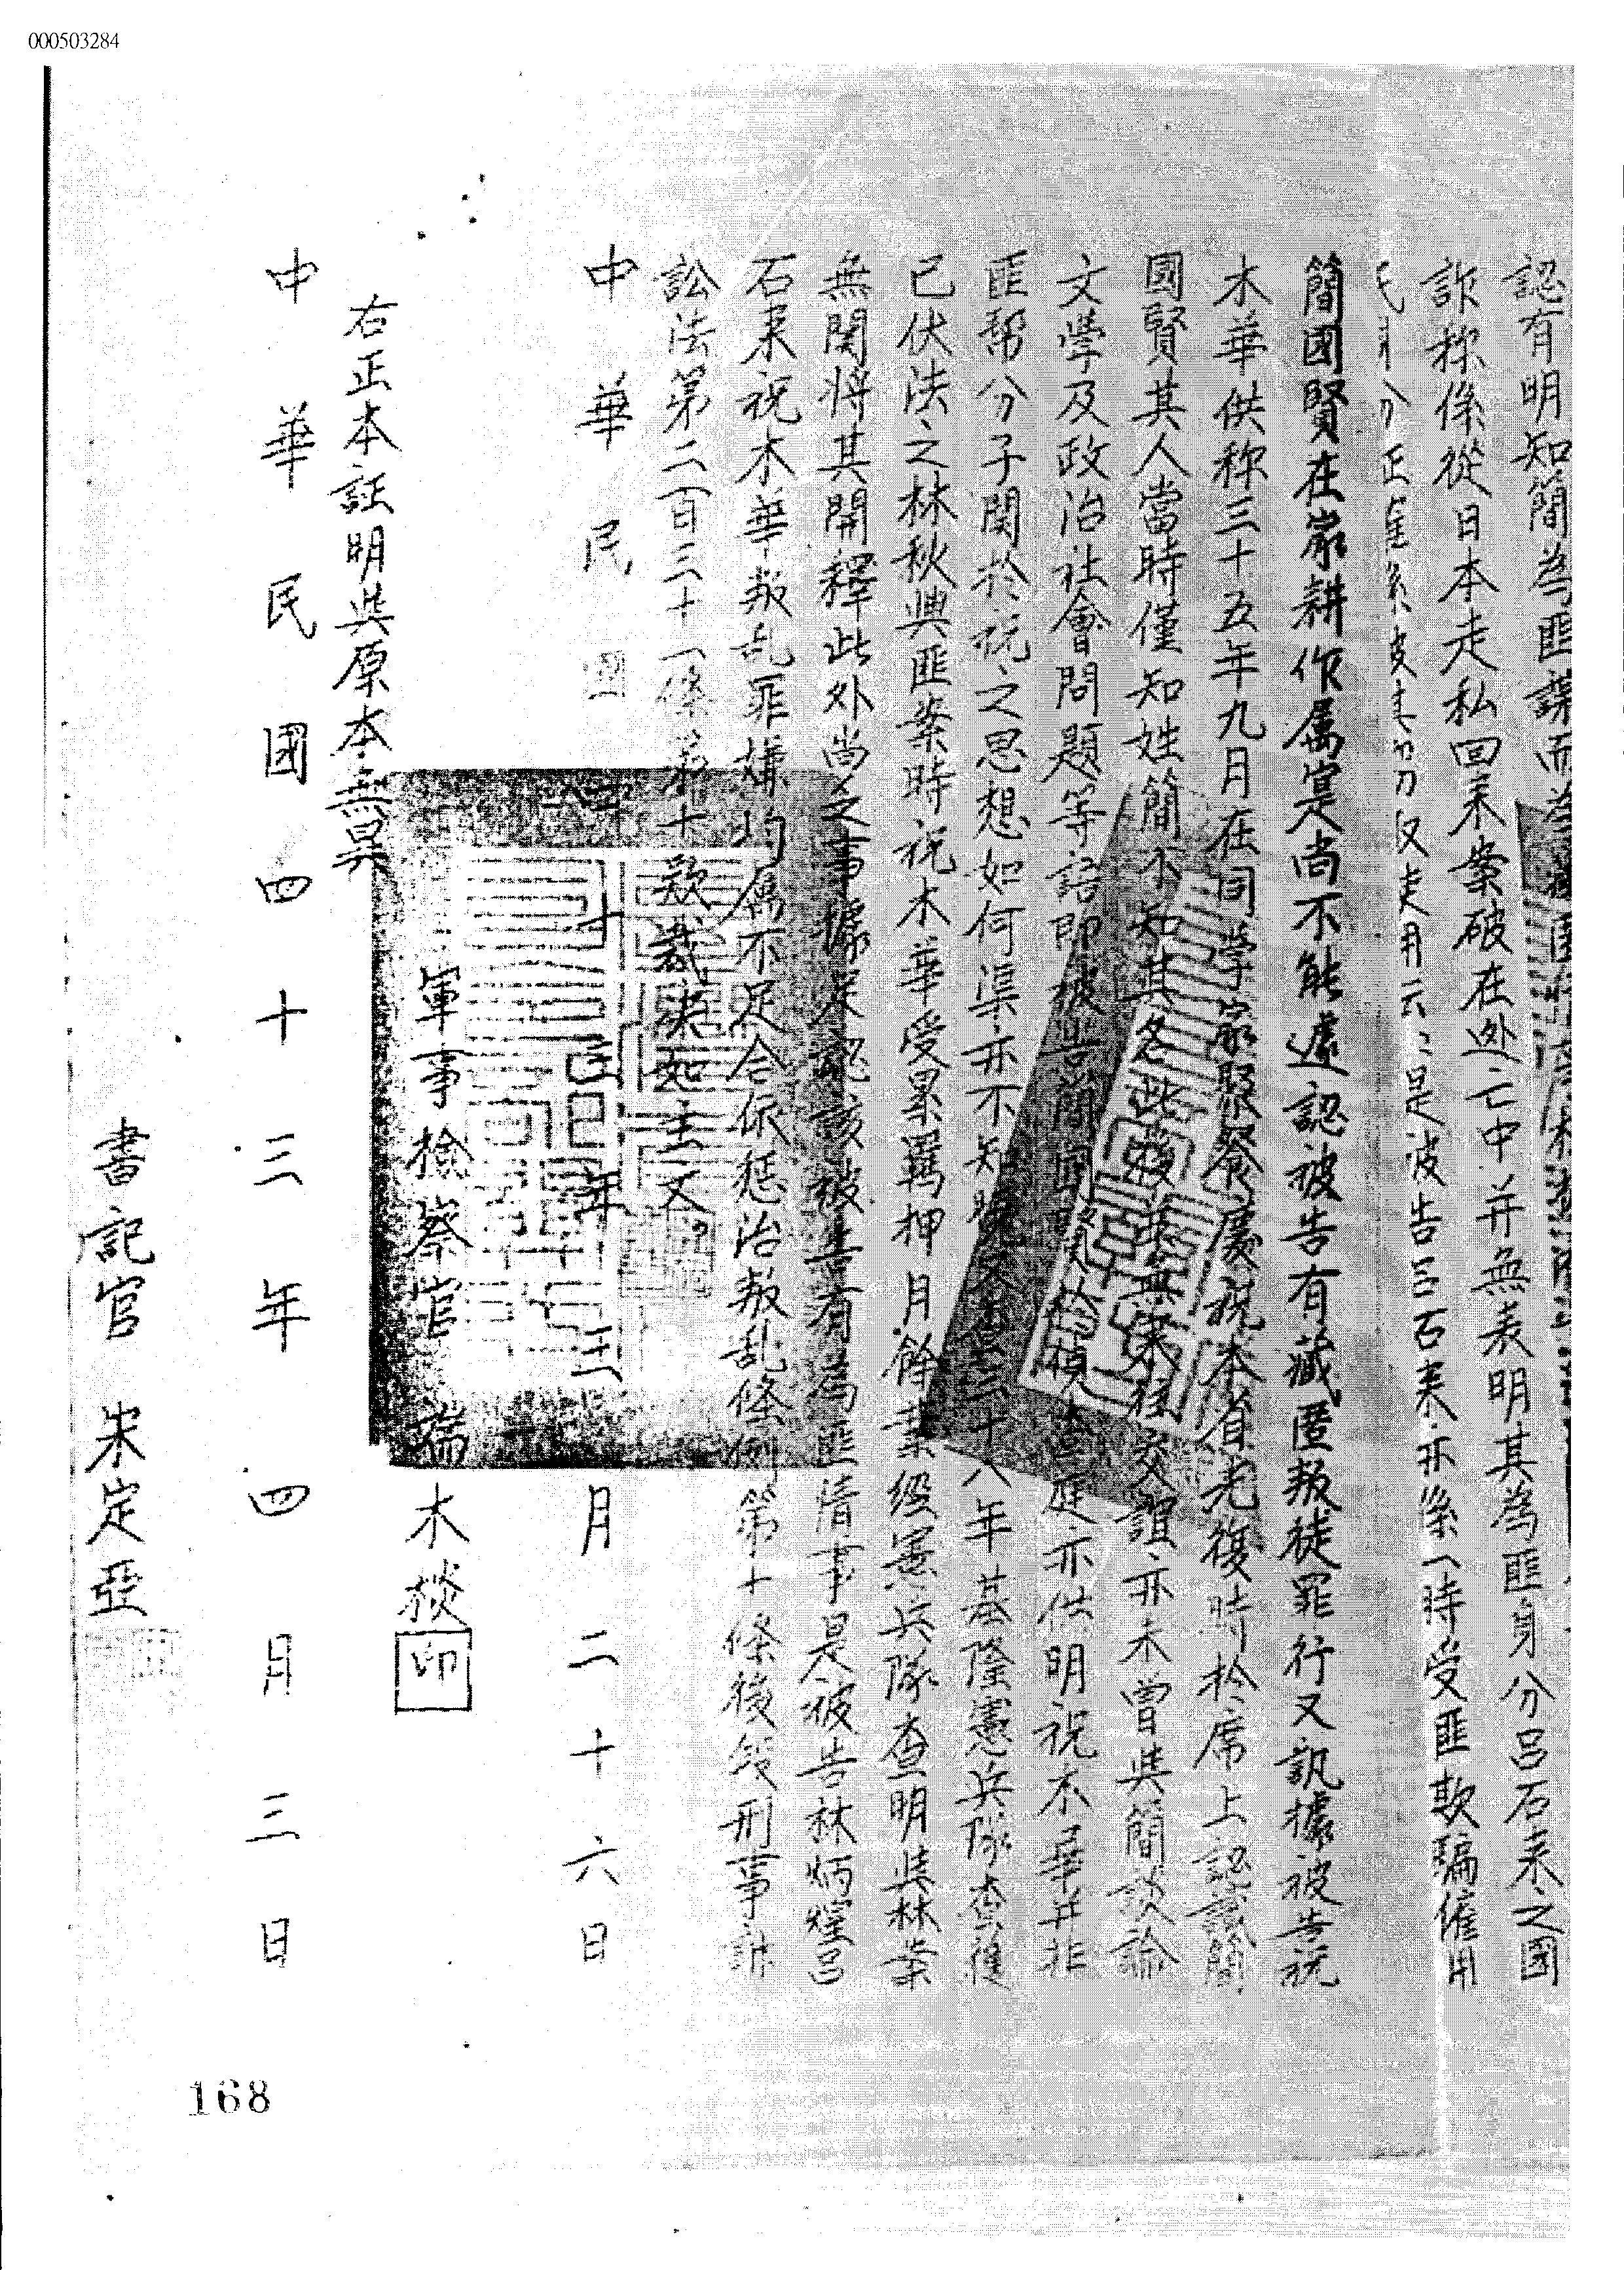 000503284
認有明知簡為匪諜而
在逃亡中并無表明其為匪身分呂石来之國
詐称係從日本走私回来案破
亦係一時受匪欺騙僱用
是被告呂石来
簡國賢在家耕作屬實尚不能遽認被告有藏匿叛徒罪行又訊據被告祝
木華供称三十五年九月在同學家聚餐慶祝本省光復時於席上認識簡
國賢其人當時僅知姓簡不知其名此後並無來往交誼亦未曾與簡談論
文學及政治社會問題等語即被告簡國賢 庭亦供明祝木華并非
匪幫分子関於祝之思想如何渠亦不知曉 三十八年基隆憲兵隊查獲
已伏法之林秋興匪案時祝木華受累羈押月餘業經憲兵隊查明與林案
無関將其開釋此外尚乏事據足認該被告有為匪情事是被告林炳煌呂
石来祝木華叛乱罪嫌均屬不足合依惩治叛乱條例第十條後段刑事訴
訟法第二百三十一條第十款裁決如主文
中華民國四十三年三月二十六日
軍事檢察官 端木棪 印
右正本証明與原本無異
中華民國四十三年四月三日
書記官 朱定亞
168